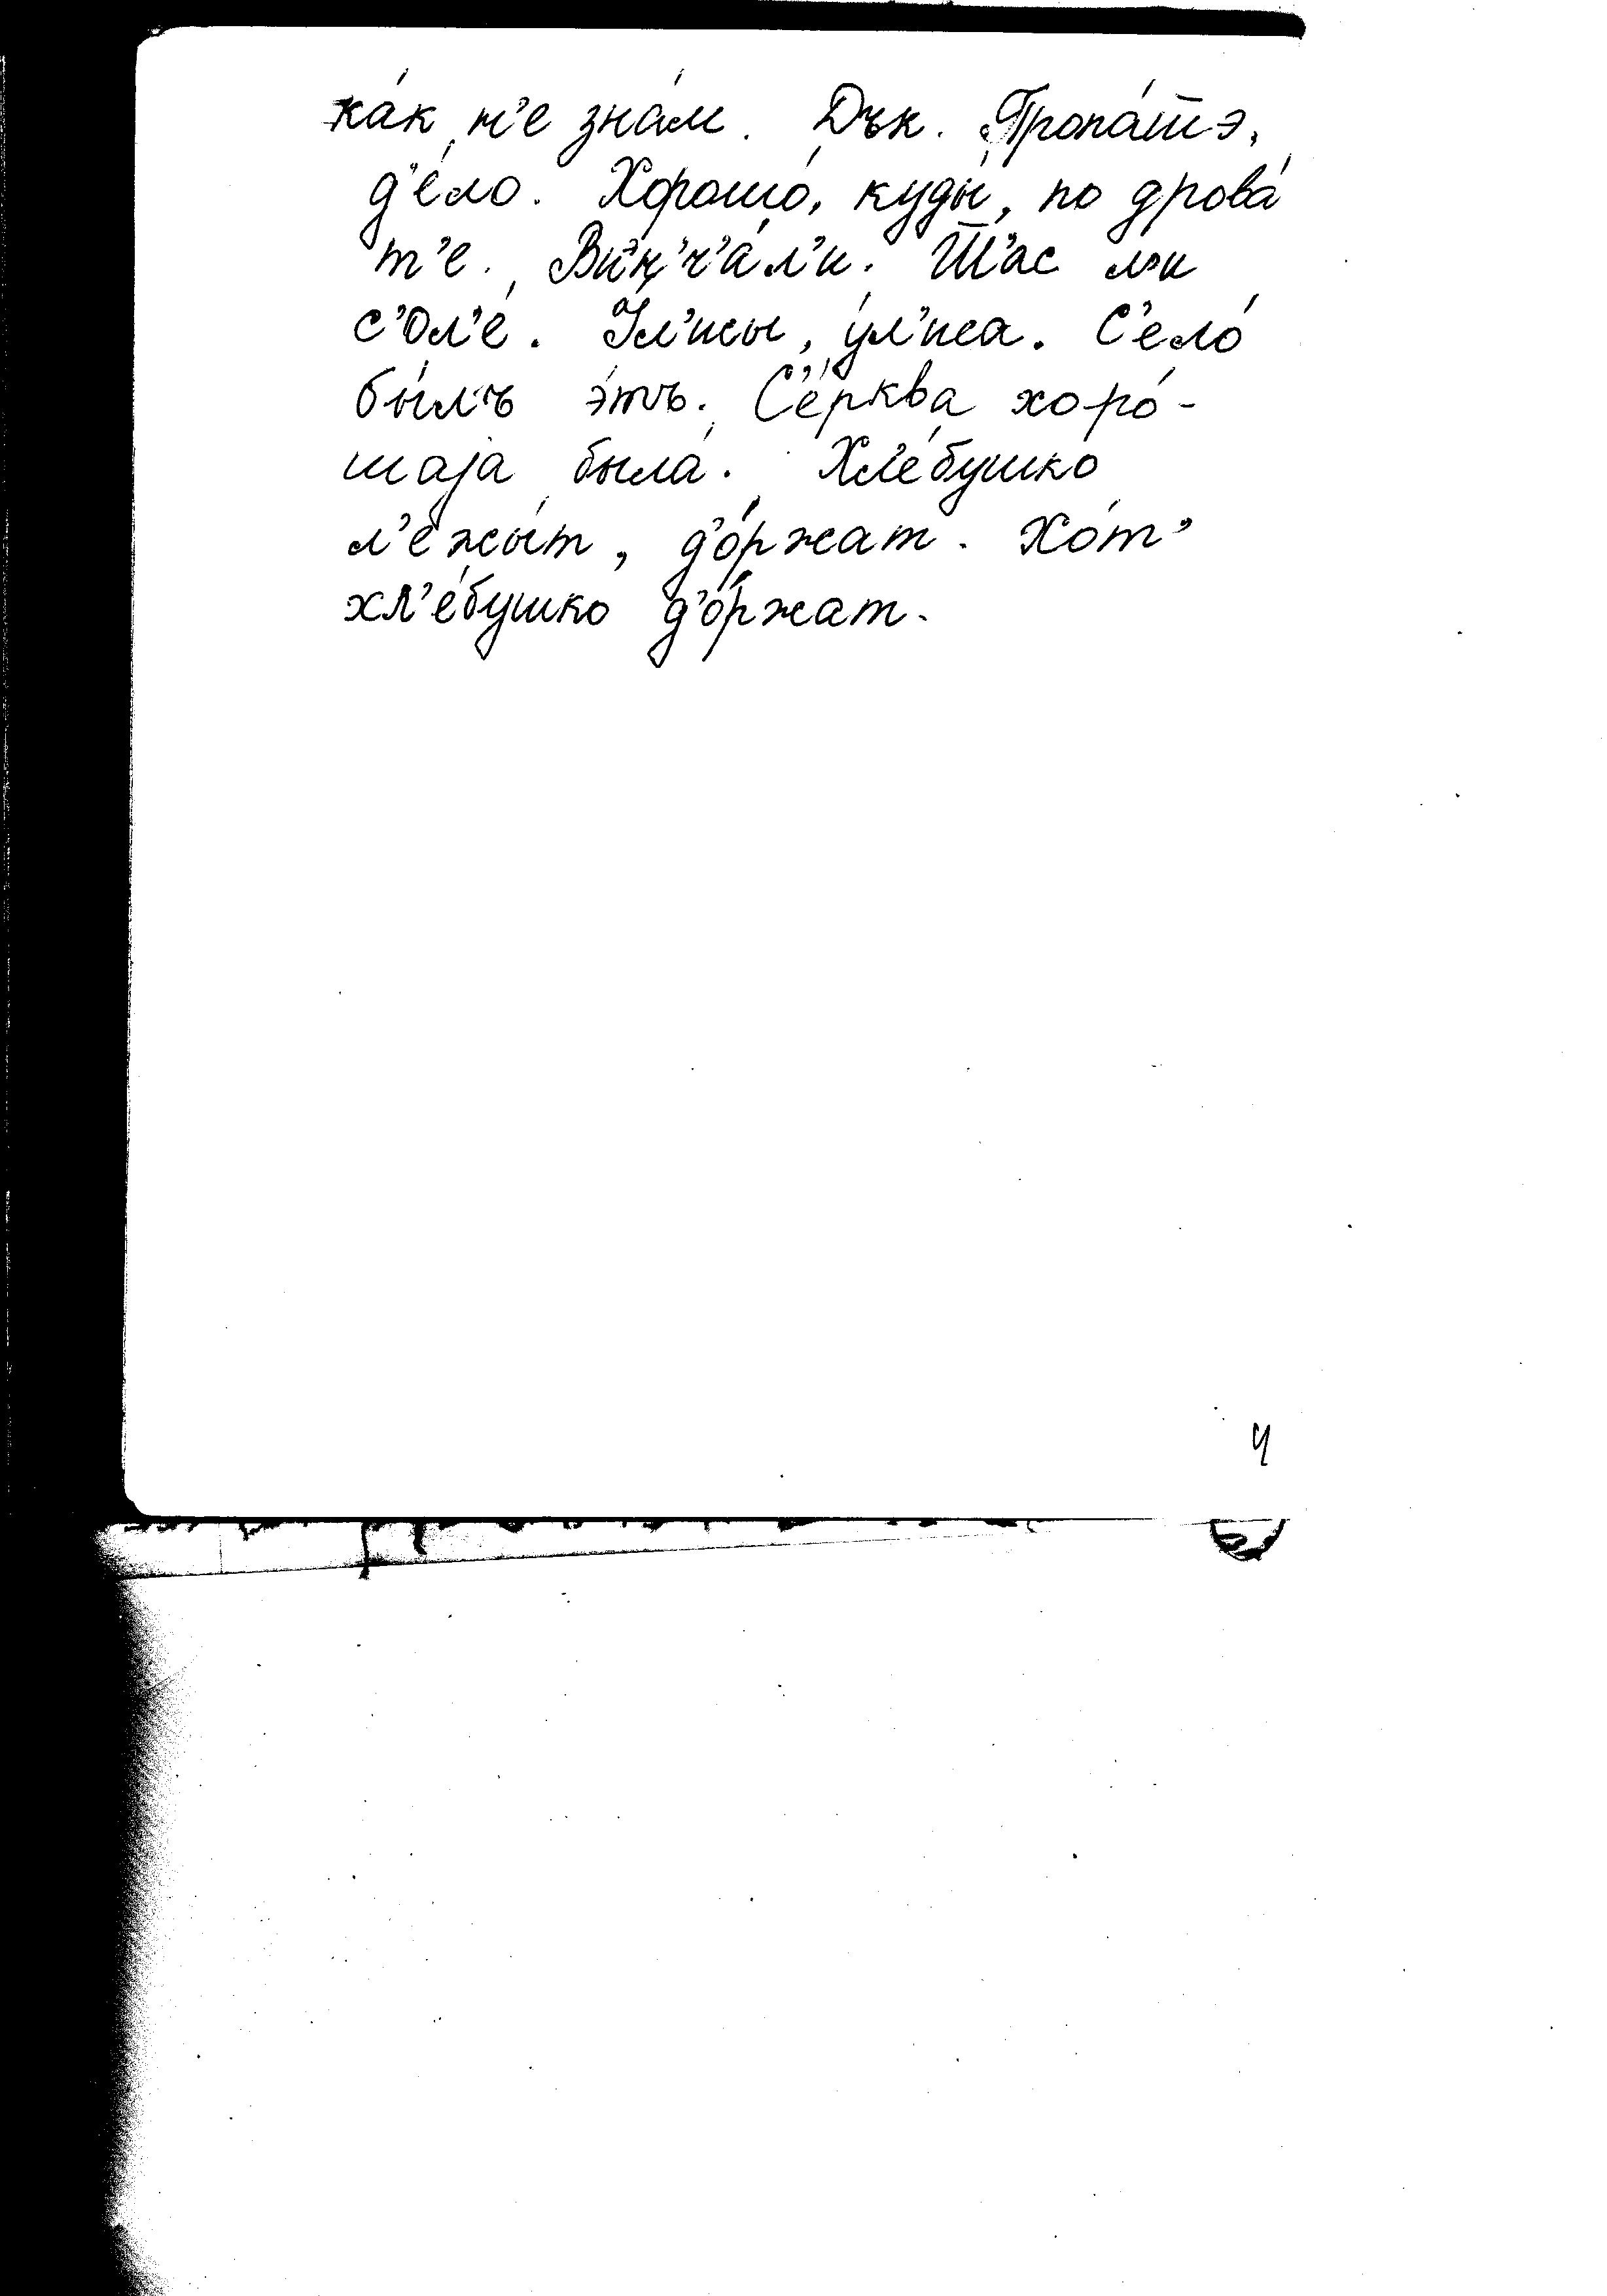 ка́к н'е зна́м. Дък. Пропа́тэ,
д'е́ло. Хорошо́, куды́, по дрова́
т'е. Ви́н'ч'а́л'и. Ш'ас ли
с'Ол'е́. У́л'исы, у́л'иса. С'ело́
бы́лъ э́тъ. С'е́рква хоро́-
шаjа была́. Хл'е́бушко
л'ежы́т, д'о́ржат. Хо́т'
хл'е́бушко д'о́ржат.
4